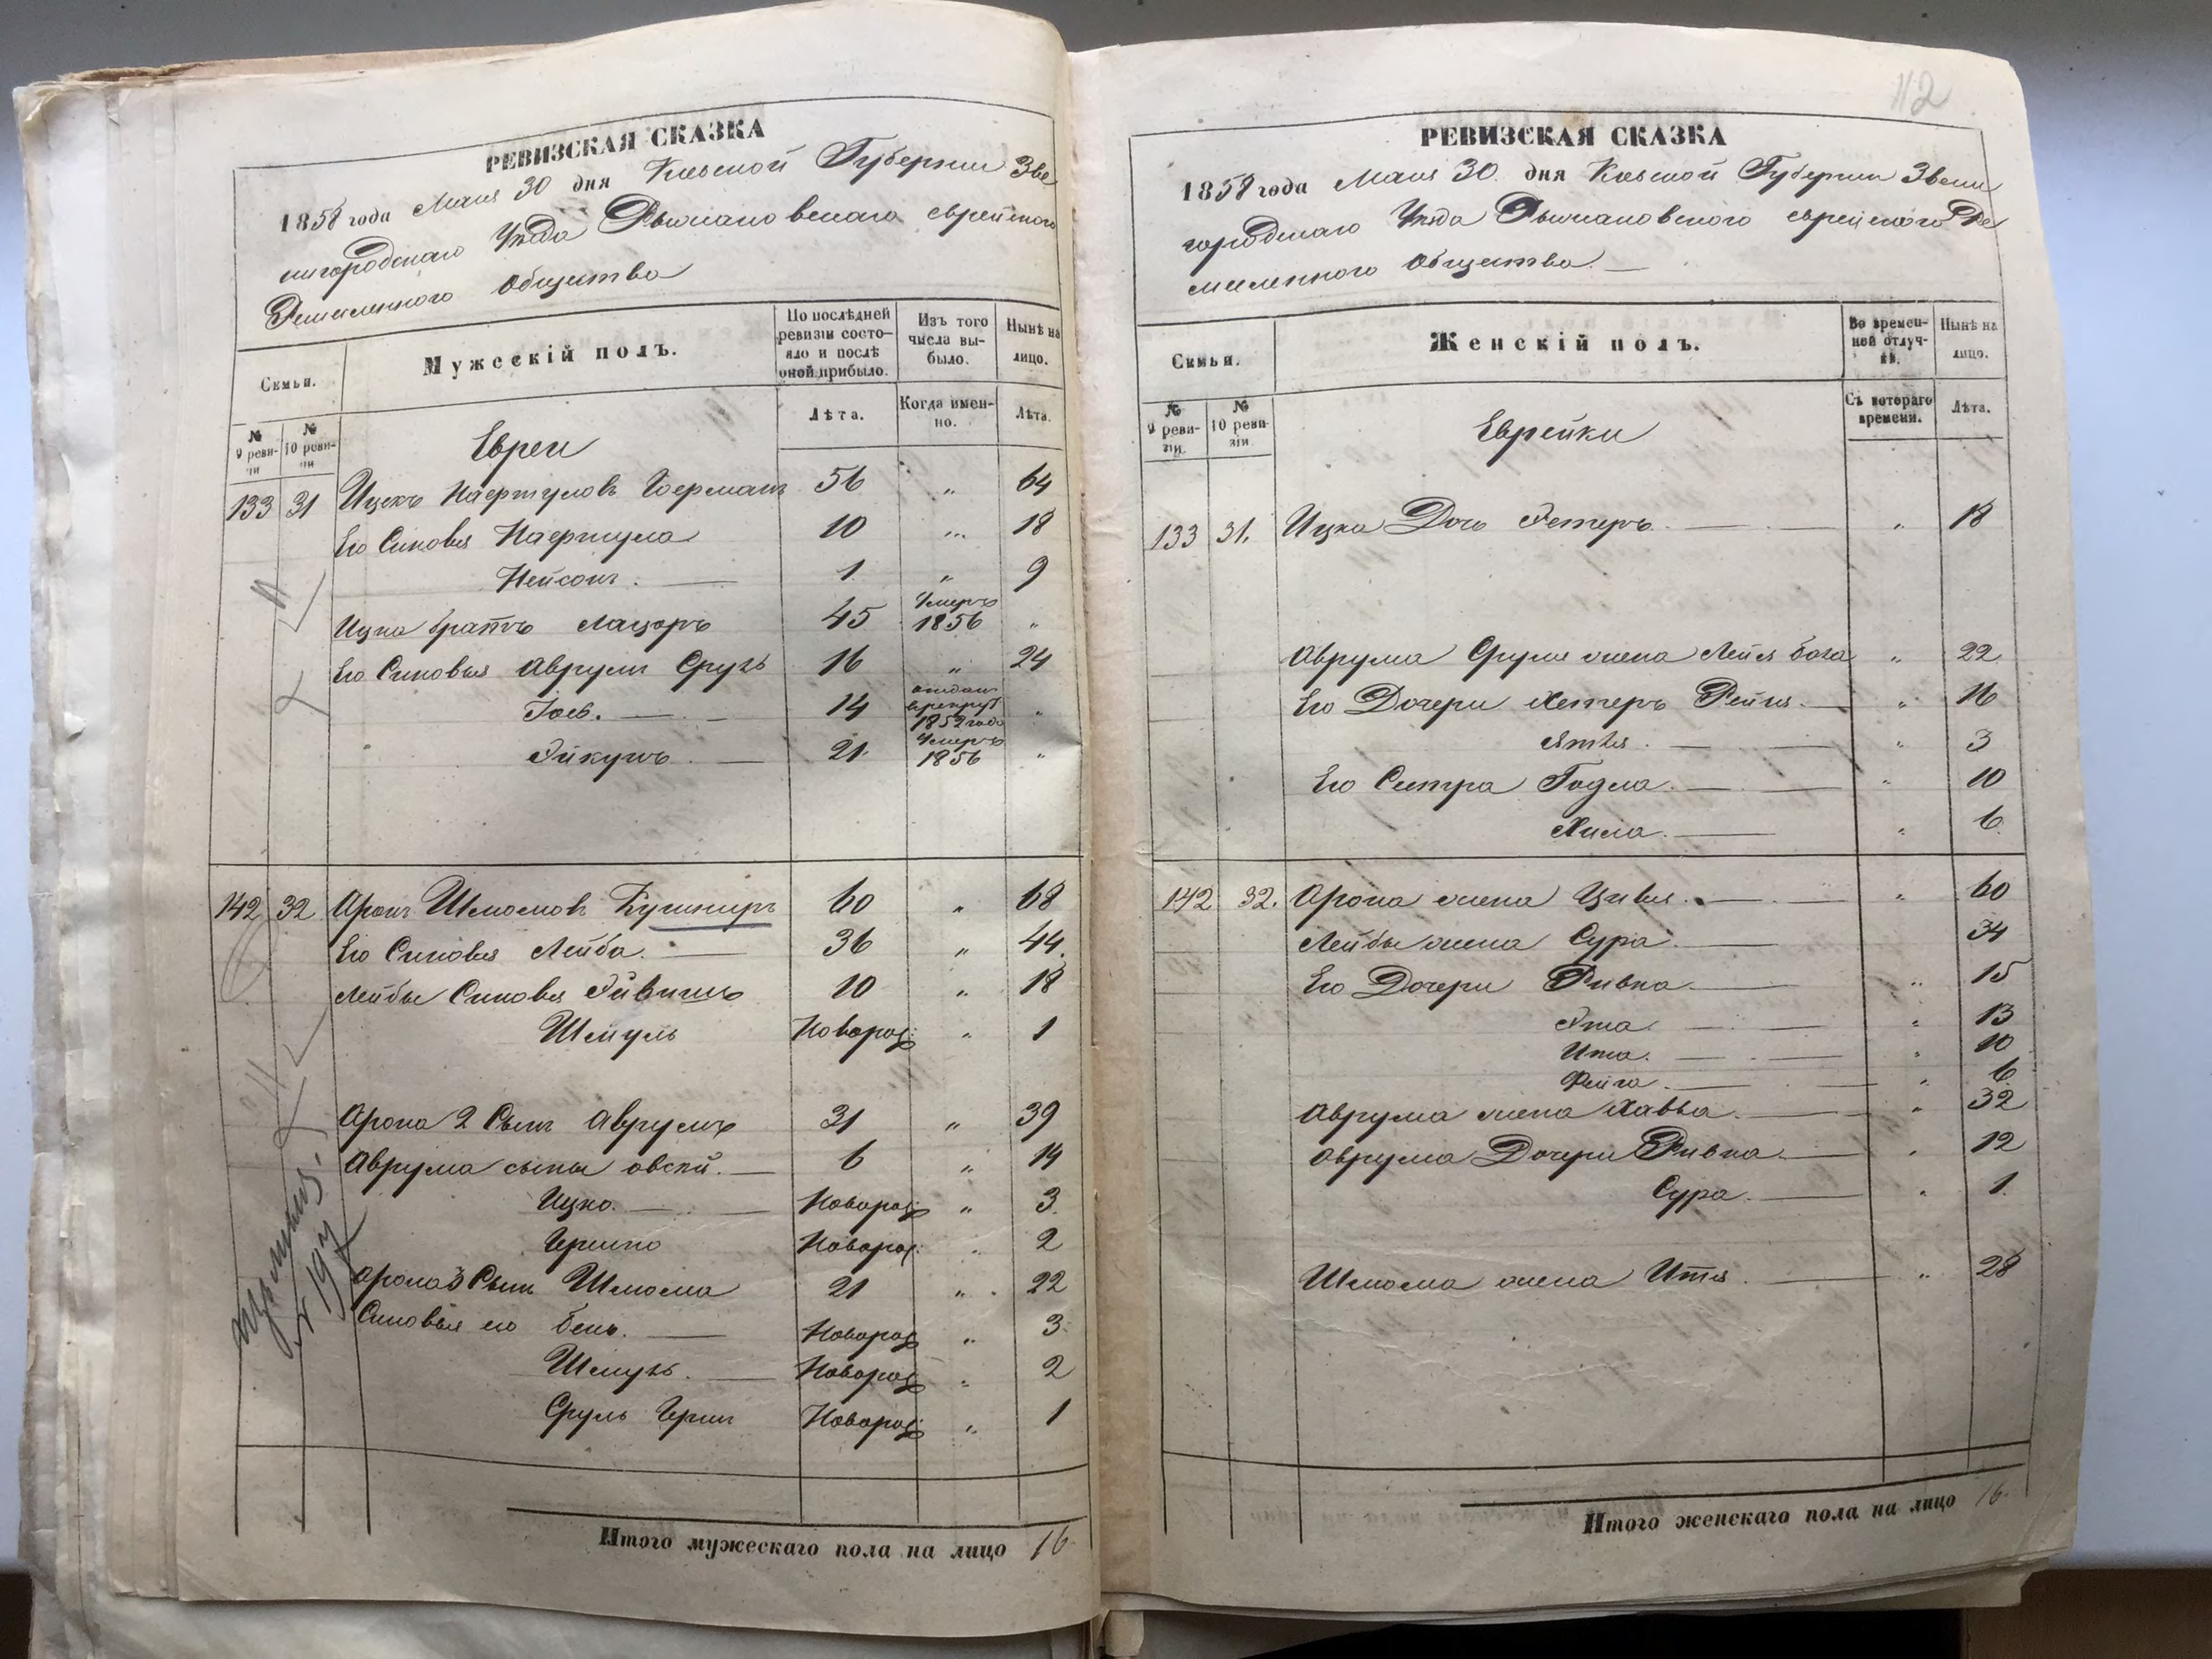 РЕВИЗСКАЯ СКАЗКА
1858 года Мая 30 дня Киевской Губернии Зве
нигородскаго Уезда Рыжановскаго еврейского
Ремесленного Общества
Семьи.
Мужескій полъ.
По послѣдней ревизіи состо-
яло и послѣ оной прибыло.
Изъ того числа вы-
было.
Нынѣ на лицо.
№ 9 реви-
зіи
№ 10 реви-
зіи
Лѣта.
Когда имен-
но.
Лѣта.
Евреи
133 31 Ицекъ Нафтулов Гоерман 56 " 64
Его Синовья Нафтула 10 " 18
Нейсон. 1 " 9
Ицка братъ Лацоръ 45 Умеръ 1856 "
Его Синовья Аврум Сруль 16 " 24
Иось. 14 отдан в рекрут 1852 года "
Эйкушъ 21 Умеръ 1856 "
142 32 Арон Шлиомов Кушнир 60 " 68
Его Синовья Лейба. 36 " 44
Лейбы Синовья Эйвишъ 10 " 18
Шмуль Новорож: " 1
Арона 2 Сын Аврумъ 31 " 39
Аврума сыны овсей. 6 " 14
Ицко. Новорож: " 3
Гершко Новорож: " 2
Арона 3 Сын Шлиома 21 " 22
Синовья его бень. Новорож " 3
Шмуль. Новорож " 2
Сруль Герш Новорож: " 1
Итого мужескаго пола на лицо 16
112
РЕВИЗСКАЯ СКАЗКА
1858 года Мая 30 дня Киевской Губернии Звени
городскаго Уезда Рыжановского еврейского Ре
месленного Общества.
Семьи.
Женскій полъ.
Во времен-
ной отлуч-
кѣ.
Нынѣ на лицо.
№ 9 реви-
зіи.
№ 10 реви-
зіи
Съ котораго времени.
Лѣта.
Еврейки
133 31. Ицка Дочь Эстеръ. " 18
Аврума Сруля жена Лейя бога " 22
Его Дочери Хестеръ Рейзя. " 16
" 3
Его Сестра Годля. " 10
Хила. " 6
142 32. Арона жена Цивья. " 60
Лейбы жена Сура. 34
Его Дочери Ривка " 15
Эта. " 13
Ита. " 10
Фейга. " 6
Аврума жена Хавва. " 32
Аврума Дочери Ривка. " 12
Сура. " 1
Шлиома жена Итя. " 28
Итого женскаго пола на лицо 16